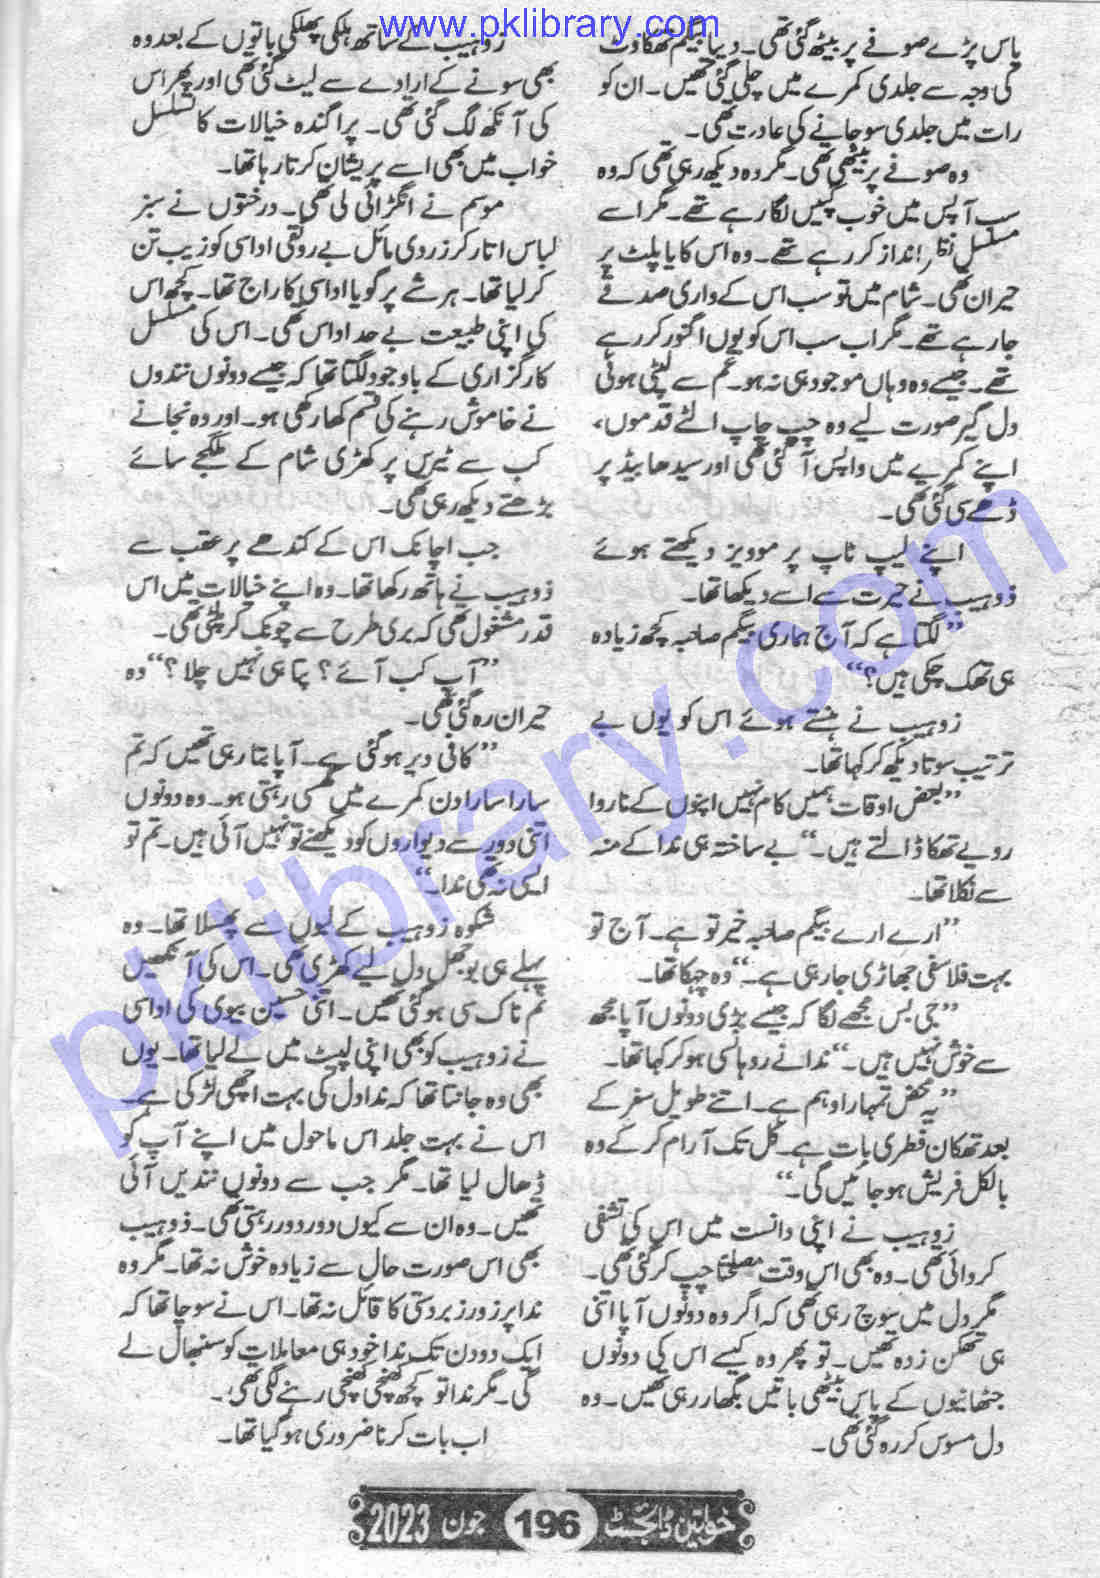 www.pklibrary.com
پاس پڑے صوفے پر بیٹھ گئی تھی۔ دیبا بیگم تھکاوٹ
کی وجہ سے جلدی کمرے میں چلی گئی تھیں۔ ان کو
رات میں جلدی سو جانے کی عادت تھی۔
وہ صوفے پر بیٹھی تھی۔ مگر وہ دیکھ رہی تھی کہ وہ
سب آپس میں خوب گپیں لگا رہے تھے۔ مگر اسے
مسلسل نظر انداز کر رہے تھے۔ وہ اس کایا پلٹ پر
حیران تھی۔ شام میں تو سب اس کے واری صدقے
جا رہے تھے۔ مگر اب سب اس کو یوں اگنور کر رہے
تھے۔ جیسے وہ وہاں موجود ہی نہ ہو۔ غم سے لپٹی ہوئی
دل گیر صورت لیے وہ چپ چاپ الٹے قدموں،
اپنے کمرے میں واپس آ گئی تھی اور سیدھا بیڈ پر
ڈھے سی گئی تھی۔
اپنے لیپ ٹاپ پر موویز دیکھتے ہوئے
زوہیب نے حیرت سے اسے دیکھا تھا۔
”لگتا ہے کہ آج ہماری بیگم صاحبہ کچھ زیادہ
ہی تھک چکی ہیں؟“
زوہیب نے ہنستے ہوئے اس کو یوں بے
ترتیب سوتا دیکھ کر کہا تھا۔
”بعض اوقات ہمیں کام نہیں اپنوں کے ناروا
رویے تھکا ڈالتے ہیں۔“ بے ساختہ ہی ندا کے منہ
سے نکلا تھا۔
”ارے ارے بیگم صاحبہ خیر تو ہے۔ آج تو
بہت فلاسفی جھاڑی جا رہی ہے۔“ وہ چہکا تھا۔
”جی بس مجھے لگا کہ جیسے بڑی دونوں آپا مجھ
سے خوش نہیں ہیں۔“ ندا نے روہانسی ہو کر کہا تھا۔
”یہ محض تمہارا وہم ہے۔ اتنے طویل سفر کے
بعد تھکان فطری بات ہے۔ کل تک آرام کر کے وہ
بالکل فریش ہو جائیں گی۔“
زوہیب نے اپنی دانست میں اس کی تشفی
کروائی تھی۔ وہ بھی اس وقت مصلحتاً چپ کر گئی تھی۔
مگر دل میں سوچ رہی تھی کہ اگر وہ دونوں آپا اتنی
ہی تھکن زدہ تھیں۔ تو پھر وہ کیسے اس کی دونوں
جٹھانیوں کے پاس بیٹھی باتیں بگھار رہی تھیں۔ وہ
دل مسوس کر رہ گئی تھی۔
زوہیب کے ساتھ ہلکی پھلکی باتوں کے بعد وہ
بھی سونے کے ارادے سے لیٹ گئی تھی اور پھر اس
کی آنکھ لگ گئی تھی۔ پراگندہ خیالات کا تسلسل
خواب میں بھی اسے پریشان کرتا رہا تھا۔
موسم نے انگڑائی لی تھی۔ درختوں نے سبز
لباس اتار کر زردی مائل بے رونقی اداسی کو زیب تن
کر لیا تھا۔ ہر شے پر گویا اداسی کا راج تھا۔ کچھ اس
کی اپنی طبیعت بے حد اداس تھی۔ اس کی مسلسل
کارگزاری کے باوجود لگتا تھا کہ جیسے دونوں نندوں
نے خاموش رہنے کی قسم کھا رکھی ہو۔ اور وہ نجانے
کب سے ٹیرس پر کھڑی شام کے ملگجے سائے
بڑھتے دیکھ رہی تھی۔
جب اچانک اس کے کندھے پر عقب سے
زوہیب نے ہاتھ رکھا تھا۔ وہ اپنے خیالات میں اس
قدر مشغول تھی کہ بری طرح سے چونک کر پلٹی تھی۔
”آپ کب آئے؟ پتا ہی نہیں چلا؟“ وہ
حیران رہ گئی تھی۔
”کافی دیر ہو گئی ہے۔ آپا بتا رہی تھیں کہ تم
سارا سارا دن کمرے میں گھسی رہتی ہو۔ وہ دونوں
اتنی دور سے دیواروں کو دیکھنے تو نہیں آئی ہیں۔ تم تو
ایسی نہ تھی ندا۔“
شکوہ زوہیب کے لبوں سے پھسلا تھا۔ وہ
پہلے ہی بوجھل دل لیے کھڑی تھی۔ اس کی آنکھیں
نم ناک سی ہو گئی تھیں۔ اتنی حسین بیوی کی اداسی
نے زوہیب کو بھی اپنی لپیٹ میں لے لیا تھا۔ یوں
بھی وہ جانتا تھا کہ ندا دل کی بہت اچھی لڑکی ہے۔
اس نے بہت جلد اس ماحول میں اپنے آپ کو
ڈھال لیا تھا۔ مگر جب سے دونوں نندیں آئی
تھیں۔ وہ ان سے کیوں دور دور رہتی تھی۔ زوہیب
بھی اس صورت حال سے زیادہ خوش نہ تھا۔ مگر وہ
ندا پر زور زبردستی کا قائل نہ تھا۔ اس نے سوچا تھا کہ
ایک دو دن تک ندا خود ہی معاملات کو سنبھال لے
گی۔ مگر ندا تو کچھ کھنچی کھنچی رہنے لگی تھی۔
اب بات کرنا ضروری ہو گیا تھا۔
خواتین ڈائجسٹ 196 جون 2023
pklibrary.com